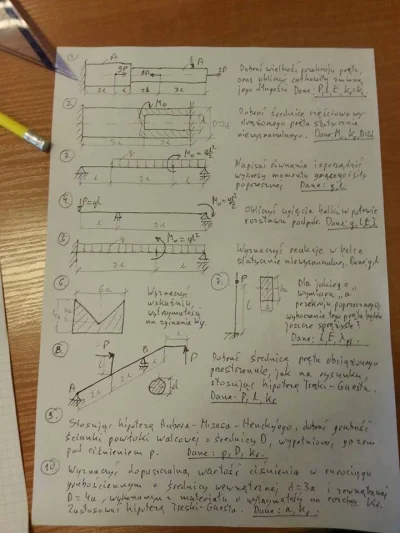 1.
A
A
3P
3P
2P
Dobrać wielkość przekroju pręta,
oraz obliczyć całkowitą zmianę
jego długości Dane: P, l, E,
2.
M₀
D=2d
Dobrać średnicę częściowo wy-
drążonego pręta statycznie
niewyznaczalnego. Dane: M₀,
3.
q
M₀=
2l
l
Napisać równania i sporządzić
wykresy momentu gnącego i siły
poprzecznej Dane: q, l
4.
P=ql
A
2l
l
Obliczyć ugięcie belki w połowie
rozstawu podpór. Dane: q, l, E, J
5.
q
M₀=ql²
2l
l
Wyznaczyć reakcje w belce
statycznie niewyznaczalnej. Dane: q, l
6.
Wyznaczyć
wskaźnik
wytrzymałości
na zginanie
7.
P
l
Dla jakiego
wymiaru „a
przekroju poprzecznego
wyboczenie tego pręta będzie
jeszcze sprężyste?
Dane: l, E,
8.
P
B
P
A
2l
2l
l
d
Dobrać średnicę pręta obciążonego
przestrzennie, jak na rysunku
stosując hipotezę Treski-Guesta.
Dane: P, l, kr
9.
Stosując hipotezę Hubera-Misesa-Hencky'ego, dobrać grubość
ścianki powłoki walcowej o średnicy D, wypełnionej gazem
pod ciśnieniem p. Dane: p, D, kr.
10.
Wyznaczyć dopuszczalną wartość ciśnienia w rurociągu
grubościennym o średnicy wewnętrznej d=3a i zewnętrznej
D=4a, wykonanym z materiału o wytrzymałości na rozciąg. kr.
Zastosować hipotezę Treski-Guesta. Dane: a, kr.